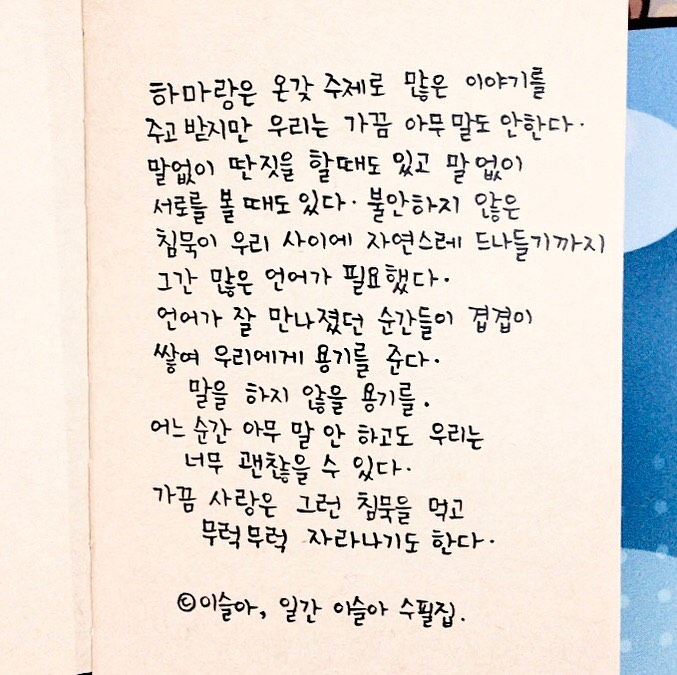 하마랑은 온갖 주제로 많은 이야기를
주고 받지만 우리는 가끔 아무 말도 안한다.
말없이 딴짓을 할때도 있고 말 없이
서로를 볼 때도 있다. 불안하지 않은
침묵이 우리 사이에 자연스레 드나들기까지
그간 많은 언어가 필요했다.
언어가 잘 만나졌던 순간들이 겹겹이
쌓여 우리에게 용기를 준다.
말을 하지 않을 용기를.
어느 순간 아무 말 안 하고도 우리는
너무 괜찮을 수 있다.
가끔 사랑은 그런 침묵을 먹고
무럭무럭 자라나기도 한다.
©이슬아, 일간 이슬아 수필집.